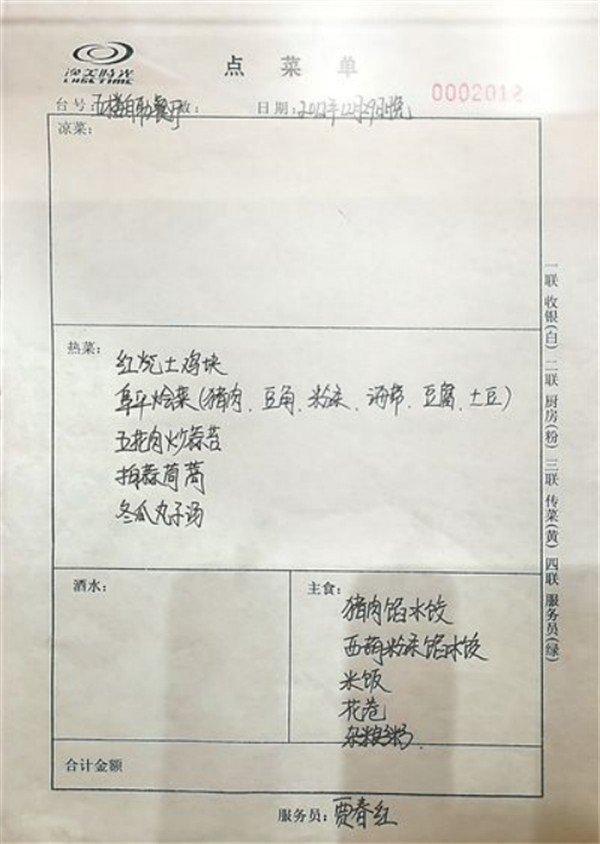 渔美時光
点菜单
0002012
台号:五楼自助餐厅 数: 日期:2012年12月29日晚
凉菜:
热菜:
红烧土鸡块
阜平烩菜(猪肉、豆角、粉条、海带、豆腐、土豆)
五花肉炒蒜苔
拌蒜茼蒿
冬瓜丸子汤
酒水:
主食:
猪肉馅水饺
西葫粉条馅水饺
米饭
花卷
杂粮粥
合计金额
服务员:贾春红
一联 收银(白) 二联 厨房(粉) 三联 传菜(黄) 四联 服务员(绿)